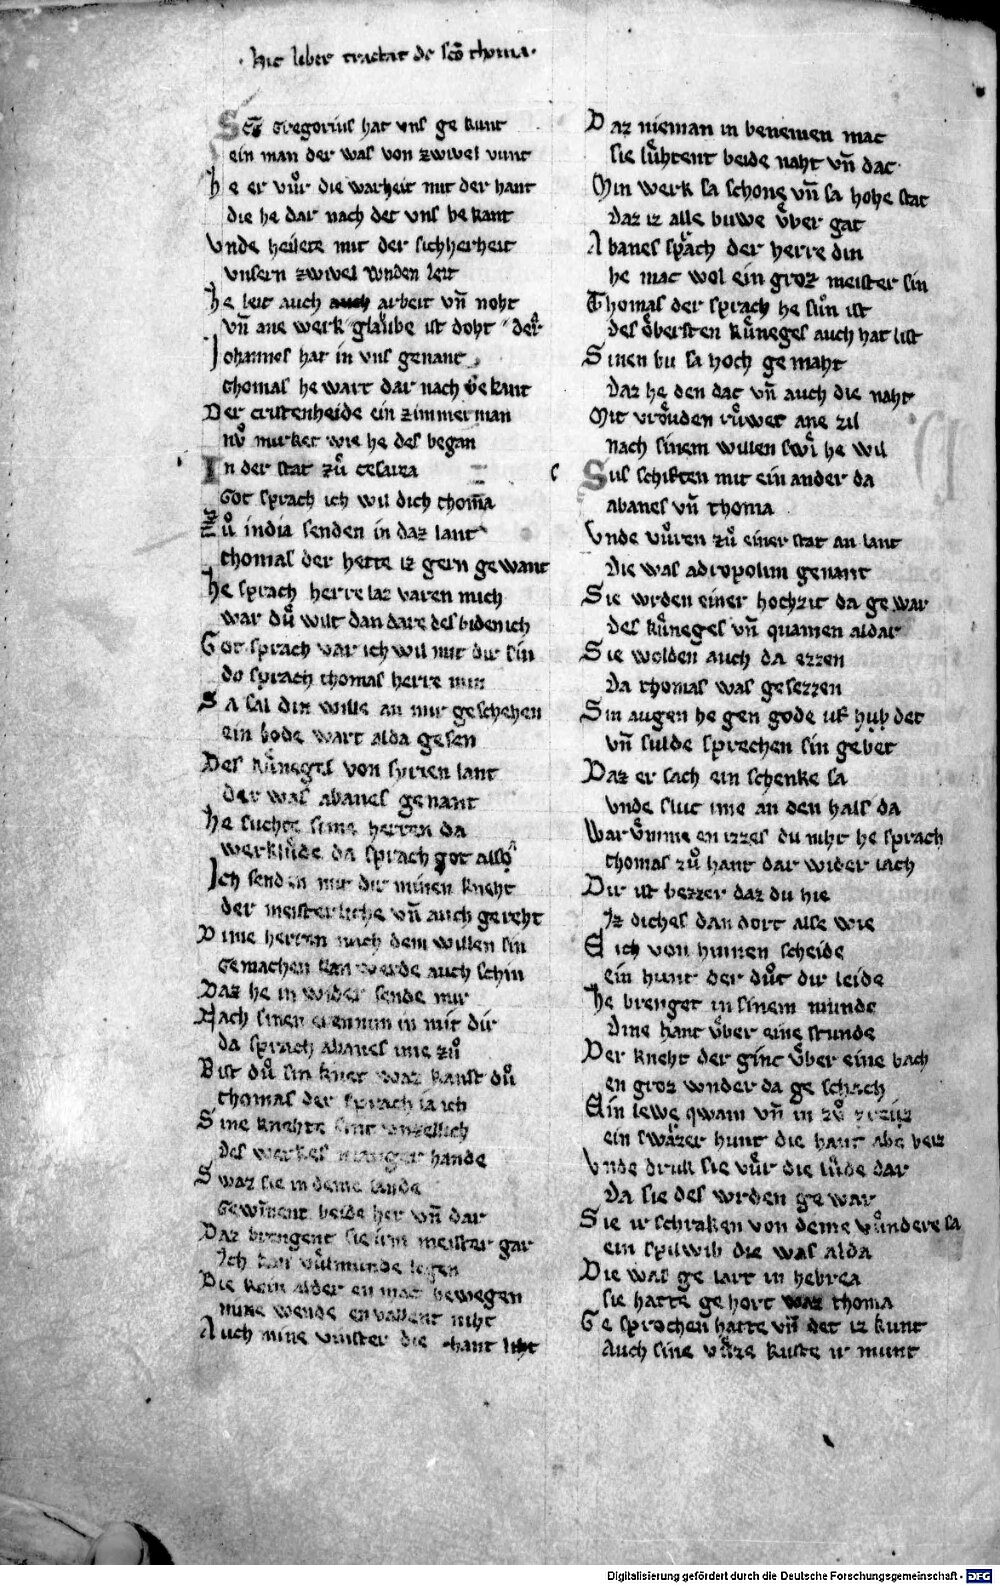 · hic liber tractat de sc̄o thoma ·
Sc̄s Gregorius hat vns ge kunt
ein man der was von zwivel vunt
he er vůr die warheit mit der hant
die he dar nach det vns be kant
vnde heilete mit der sichherheit
vnsern zwivel wnden leit
he leit auch auch arbeit vn̄ noht
vn̄ ane werk glaube ist doht der
Johannes hat in vns genant
thomas he wart dar nach be kant
Der cristenheide ein zimmerman
nv̊ mirket wie he des began
In der stat zů cesarea
Got sprach ich wil dich thoma
Zů india senden in daz lant
thomas der hette iz gern gewant
he sprach herre laz varen mich
war dů wilt dan dare des biden ich
Got sprach var ich wil mit dir sin
do sprach thomas herre min
Sa sal din wille an mir geschehen
ein bode wart alda gesen
Des kůneges von syrien lant
der was abanes genant
he suchte sime herren da
werklůde da sprach got also
Ich senden mit dir minen kneht
der meisterliche vn̄ auch gereht
Dime herren nach dem willen sin
Gemachen kan werde auch schin
Daz he in wider sende mir
Nach sinen in mit dir
da sprach abanes ime zů
Bist dů sin knet waz kanst dů
thomas der sprach ia ich
Sine knehte sint
des werkes maniger hande
Swaz sie in deme lande
Gewinent beide her vn̄ dar
Daz brengent sie irm meister gar
Ich kan vůlmunde legen
Die kein alder en mac bewegen
mine wende en vallent niht
Auch mine vinster die hant liht
Daz nieman in benemen mac
sie lůhtent beide naht vn̄ dac
Min werk sa schone vn̄ sa hohe stat
Daz iz alle buwe vber gat
Abanes sprach der herre din
he mac wol ein groz meister sin
Thomas der sprach he sun ist
des obersten kůneges auch hat list
Sinen bu sa hoch ge maht
Daz he den dac vn̄ auch die naht
Mit vrouden růwet ane zil
nach sinem willen swi he wil
Sus schikten mit ein ander da
abanes vn̄ thoma
Vnde vůren zů einer stat an lant
Die was adropolim genant
Sie wrden einer hochzit da ge war
des kůneges vn̄ quamen aldar
Sie wolden auch da ezzen
Da thomas was gesezzen
Sin augen he gen gode uf hub det
vn̄ sulde sprechen sin gebet
Daz er sach ein schenke sa
vnde sluc ime an den hals da
Warůmme en izzes du niht he sprach
thomas zů hant dar wider iach
Dir ist bezzer daz du hie
Iz diches dan dort alse wie
E ich von hinnen scheide
ein hunt der důt dir leide
he brenget in sinem munde
Dine hant vber eine stunde
Der kneht der ginc vber eine bach
en groz wnder da ge schach
Ein lewe qwam vn̄ in zů
ein swazer hunt die hant abe beiz
Vnde druk sie vůr die lůde dar
Da sie des wrden ge war
Sie ir schraken von deme wundere sa
ein spilwib die was alda
Die was ge lart in hebrea
sie hatte ge hort waz thoma
Ge sprochen hatte vn̄ det iz kunt
Auch sine vůze kuste ir munt
Digitalisierung gefördert durch die Deutsche Forschungsgemeinschaft - DFG